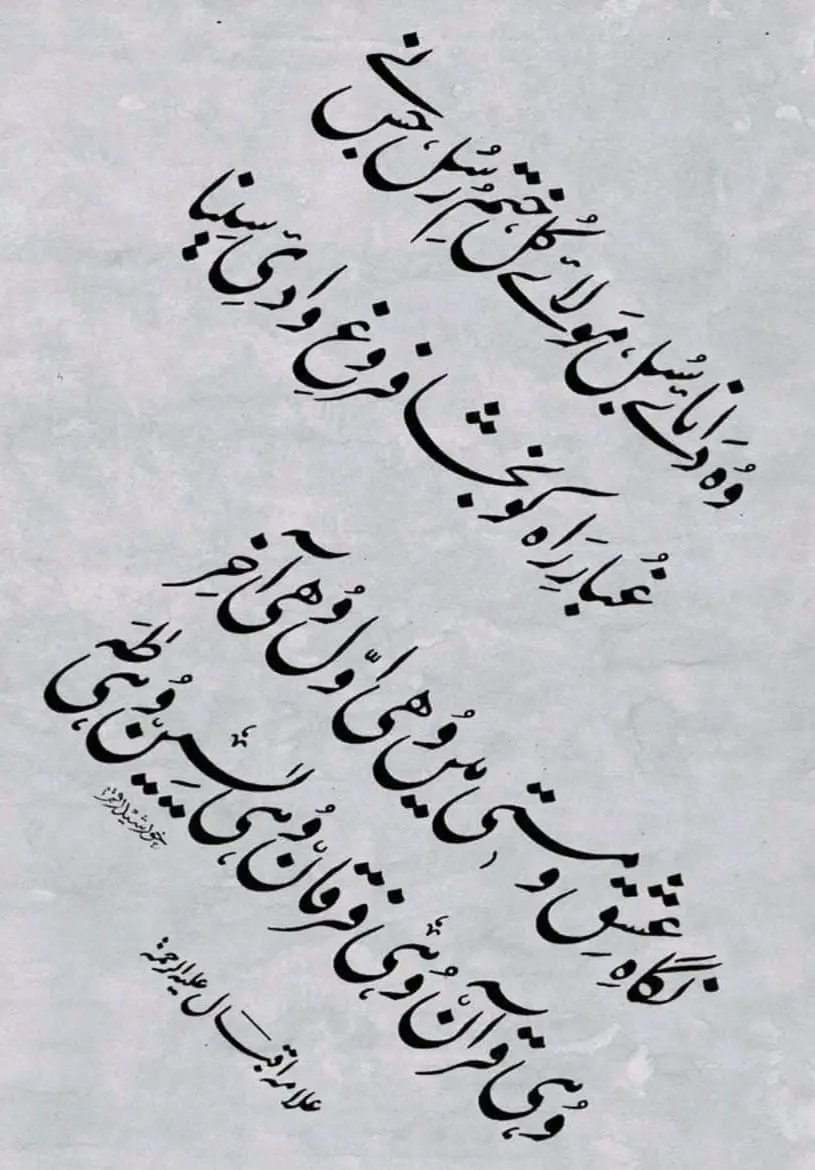 وُہ دَانائے سُبل، مَولائے کُل، ختمُ رُسُل، جس نے
غُبارِ رَاہ کو بخشا فروغِ وادیِ سِینا
نگاہِ عِشق و مستی میں وُہی اوّل وُہی آخِر
وُہی قرآں وُہی فرقاں وُہی یٰسِیں وُہی طٰہٰ
علامہ اقبال علیہ الرحمۃ